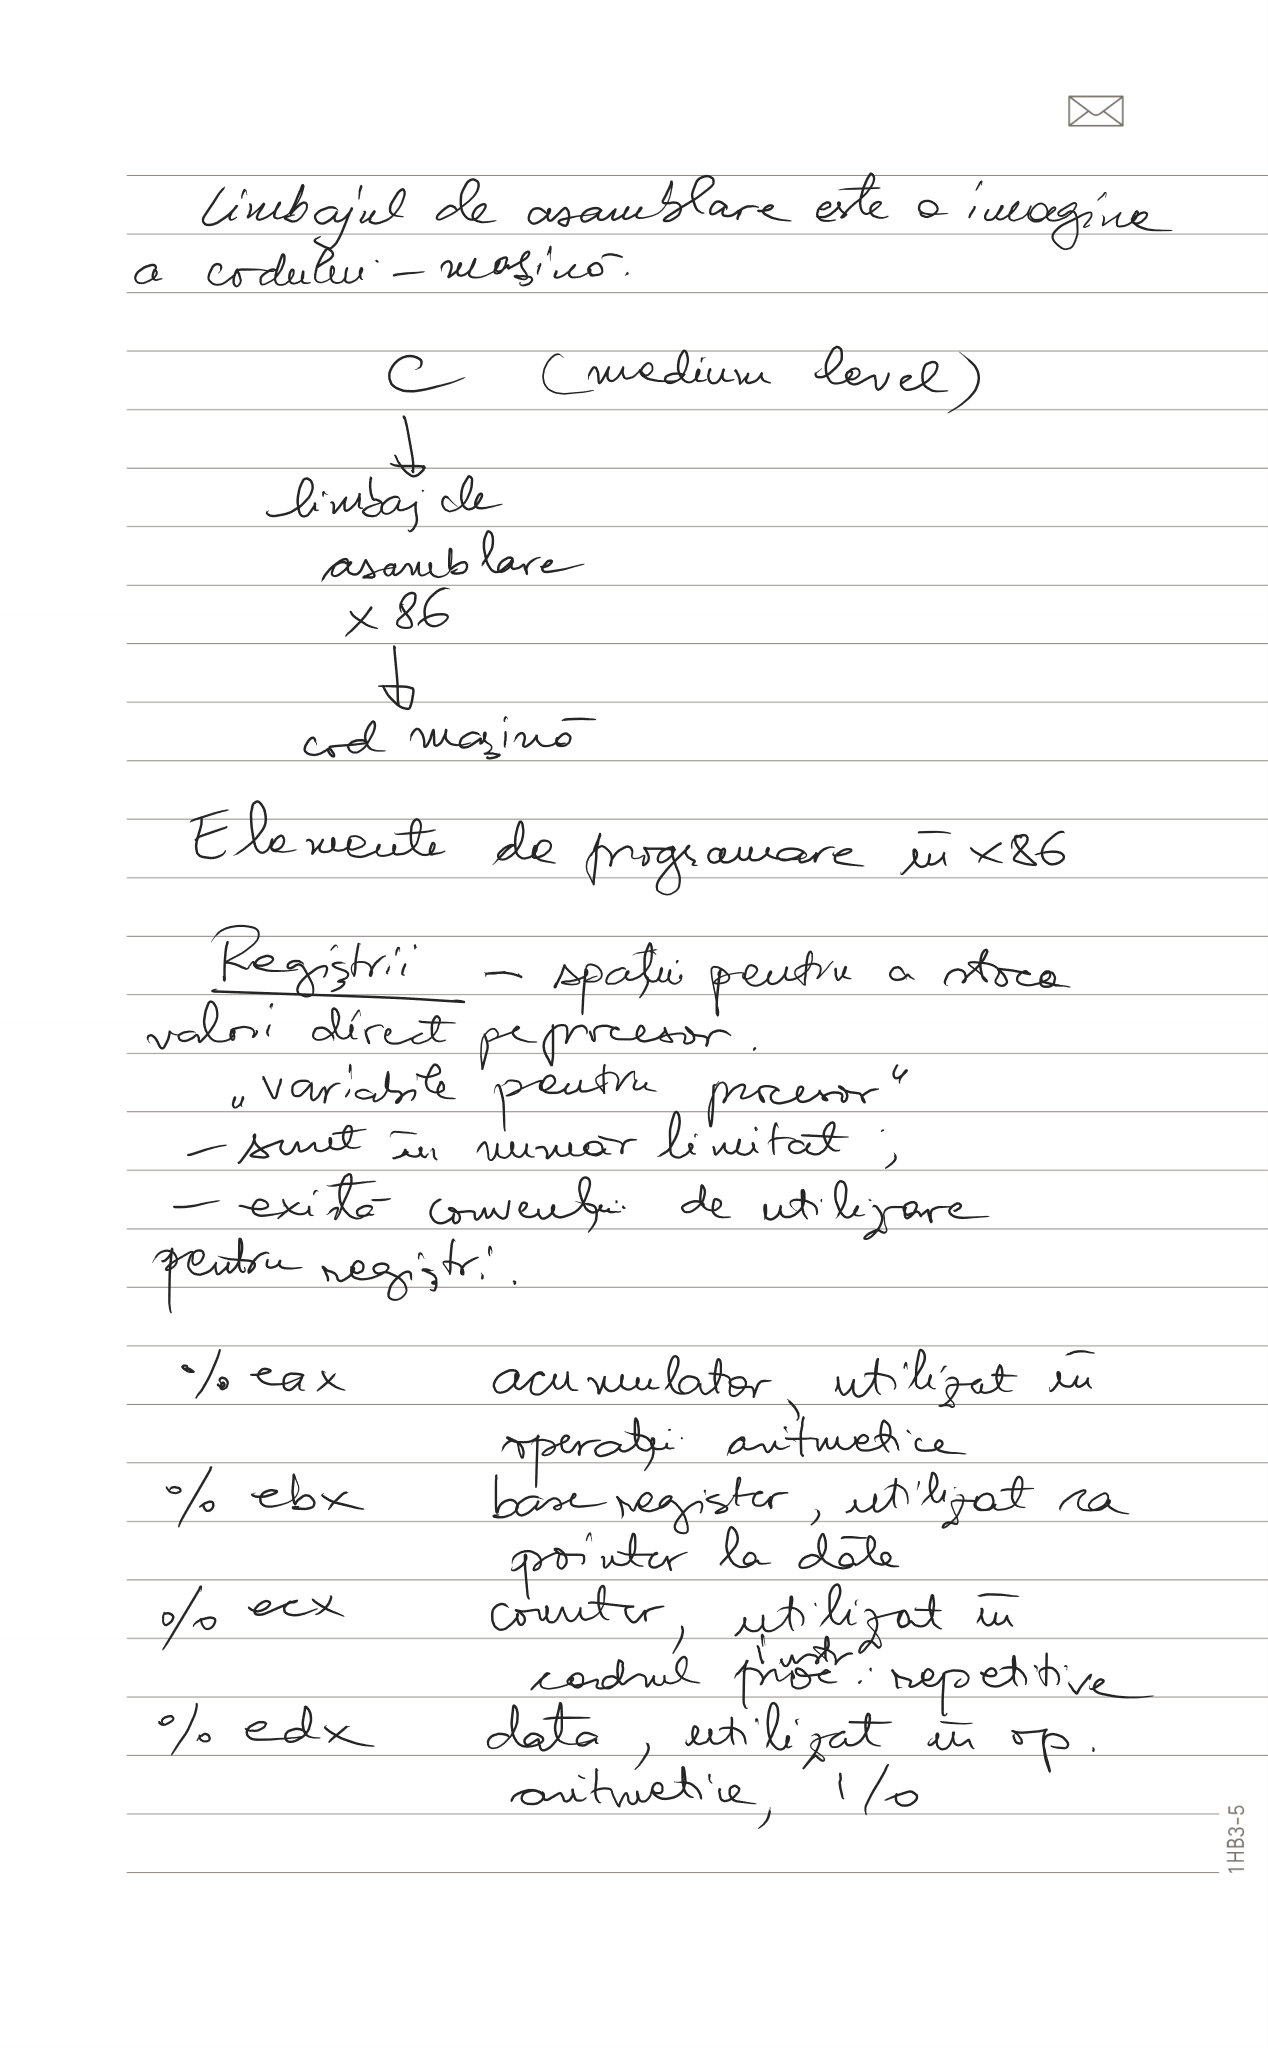 Limbajul de asamblare este o imagine
a codului - mașină.
C (medium level)
limbaj de
asamblare
x86
cod mașină
Elemente de programare în x86
Regiștrii - spații pentru a stoca
valori direct pe procesor.
„variabile pentru procesor“
- sunt în număr limitat ;
- există convenții de utilizare
pentru regiștri.
% eax acumulator, utilizat în
operații aritmetice
% ebx base register, utilizat ca
pointer la date
% ecx counter, utilizat în
instr
cadrul proc. repetitive
% edx data, utilizat în op.
aritmetice, I/O
1HB3-5